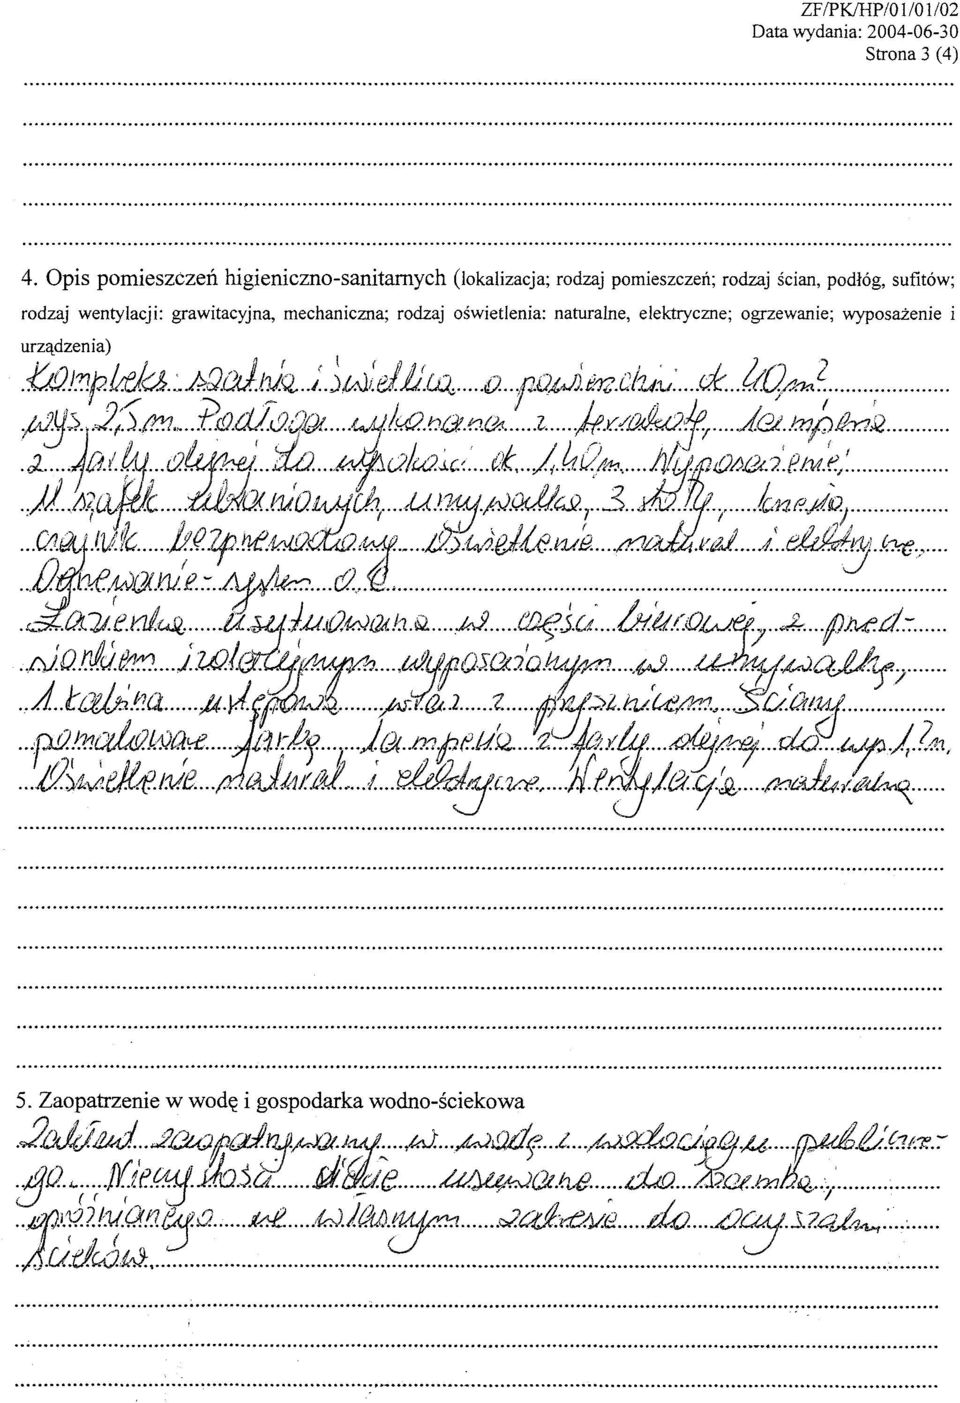 ZF/PK/HP/01/01/02
Data wydania: 2004-06-30
Strona 3 (4)
4. Opis pomieszczeń higieniczno-sanitarnych (lokalizacja; rodzaj pomieszczeń; rodzaj ścian, podłóg, sufitów;
rodzaj wentylacji: grawitacyjna, mechaniczna; rodzaj oświetlenia: naturalne, elektryczne; ogrzewanie; wyposażenie i
urządzenia)
Kompleks: szatnia i świetlica o powierzchni ok 40 m²
wys 2,5 m. Podłoga wykonana z terrakoty, lamperia
z farby olejnej do wysokości ok 1,40m. Wyposażenie:
11 szafek ubraniowych, umywalka, 3 stoły, krzesła,
czajnik bezprzewodowy. Oświetlenie natural i elektryczne,
Ogrzewanie - system C.O.
Łazienka usytuowana w części biurowej, z przed-
sionkiem izolacyjnym wyposażonym w umywalkę,
1 kabina ustępowa wraz z prysznicem. Ściany
pomalowane farbą, lamperia z farby olejnej do wys 1,2m,
Oświetlenie natural i elektryczne. Wentylacja naturalna
5. Zaopatrzenie w wodę i gospodarka wodno-ściekowa
Zakład zaopatrywany w wodę z wodociągu publiczne-
go. Nieczystości usuwane do szamba,
opróżnianego we własnym zakresie do oczyszczalni
ścieków.